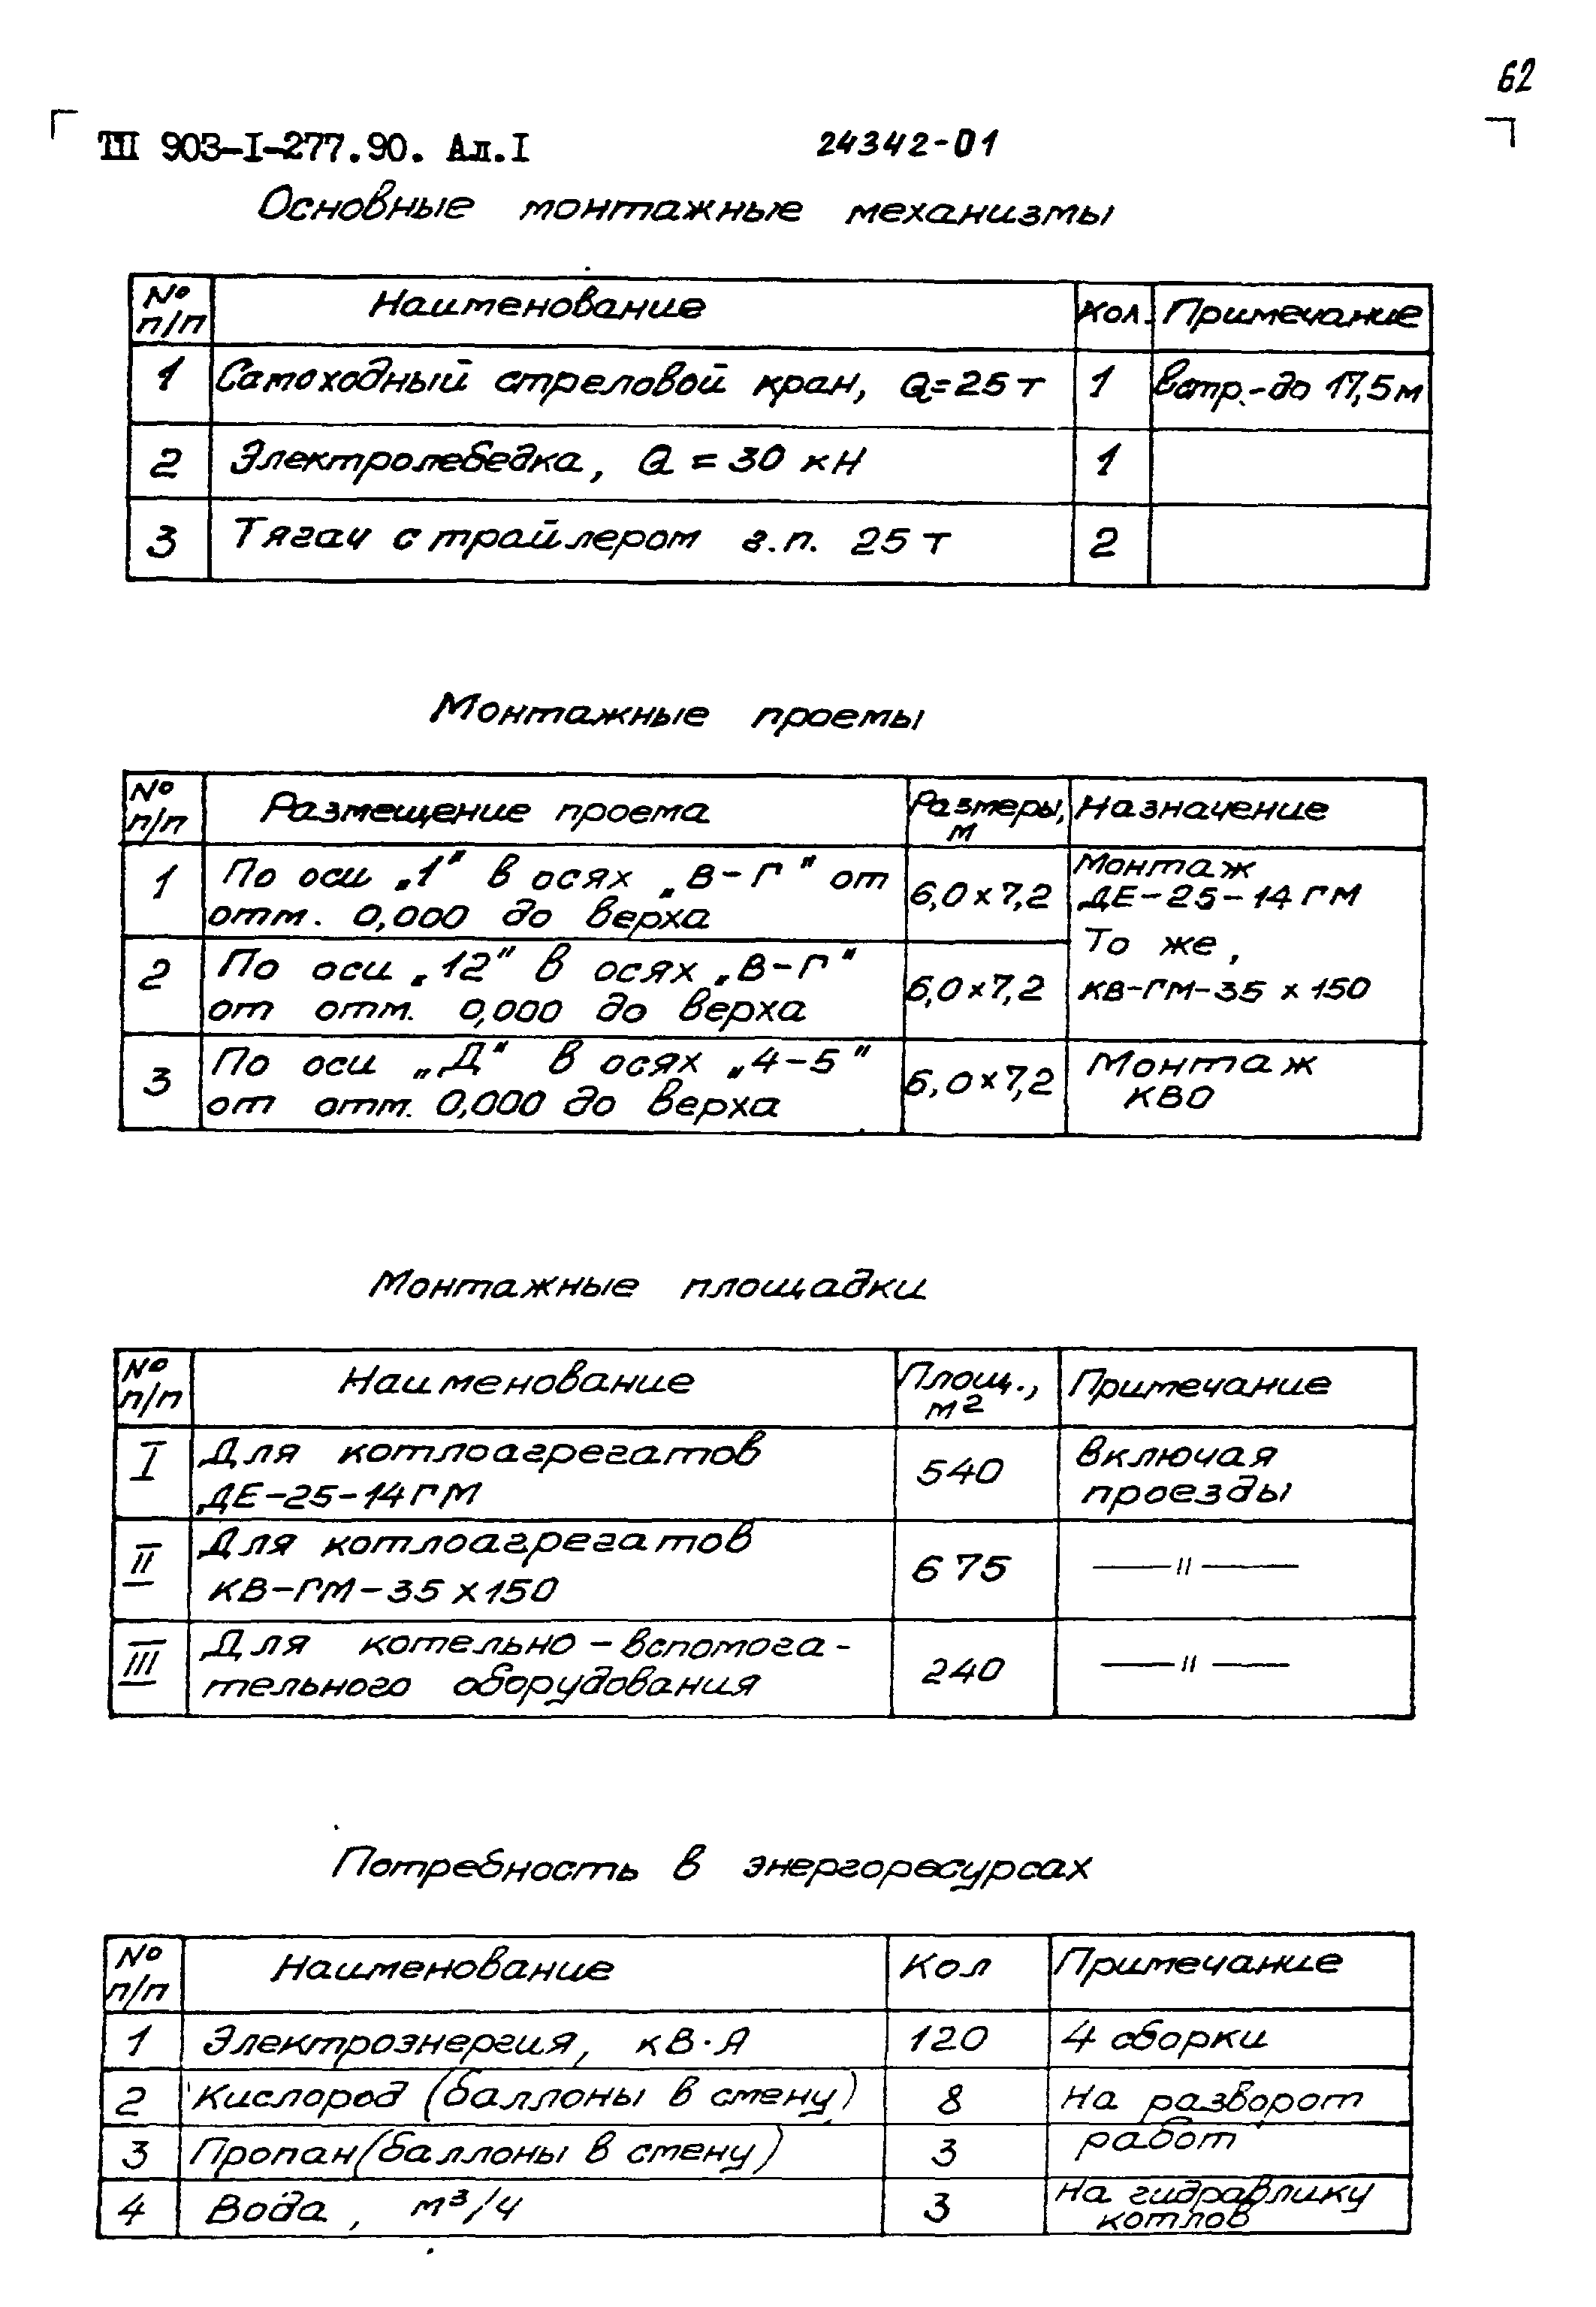 62
ТП 903-I-277.90. Ал.I 24342-01
Основные монтажные механизмы
№ п/п Наименование Кол. Примечание
1 Самоходный стреловой кран, Q=25 т 1 Встр.-до 17,5 м
2 Электролебедка, Q = 30 кН 1
3 Тягач с трайлером г.п. 25 т 2
Монтажные проемы
№ п/п Размещение проема Размеры, м Назначение
1 По оси „1" в осях „В-Г" от
отм. 0,000 до верха 6,0×7,2 Монтаж
ДЕ-25-14ГМ
2 По оси „12" в осях „В-Г"
от отм. 0,000 до верха 6,0×7,2 То же,
КВ-ГМ-35 х 150
3 По оси „Д" в осях „4-5"
от отм. 0,000 до верха 6,0×7,2 Монтаж
КВО
Монтажные площадки
№ п/п Наименование Площ., м² Примечание
I Для котлоагрегатов
ДЕ-25-14ГМ 540 Включая
проезды
II Для котлоагрегатов
КВ-ГМ-35 х 150 675 —"—
III Для котельно-вспомога-
тельного оборудования 240 —"—
Потребность в энергоресурсах
№ п/п Наименование Кол Примечание
1 Электроэнергия, кВ·А 120 4 сборки
2 Кислород (баллоны в смену) 8 На разворот
3 Пропан (баллоны в смену) 3 работ
4 Вода, м³/ч 3 На гидравлику
котлов